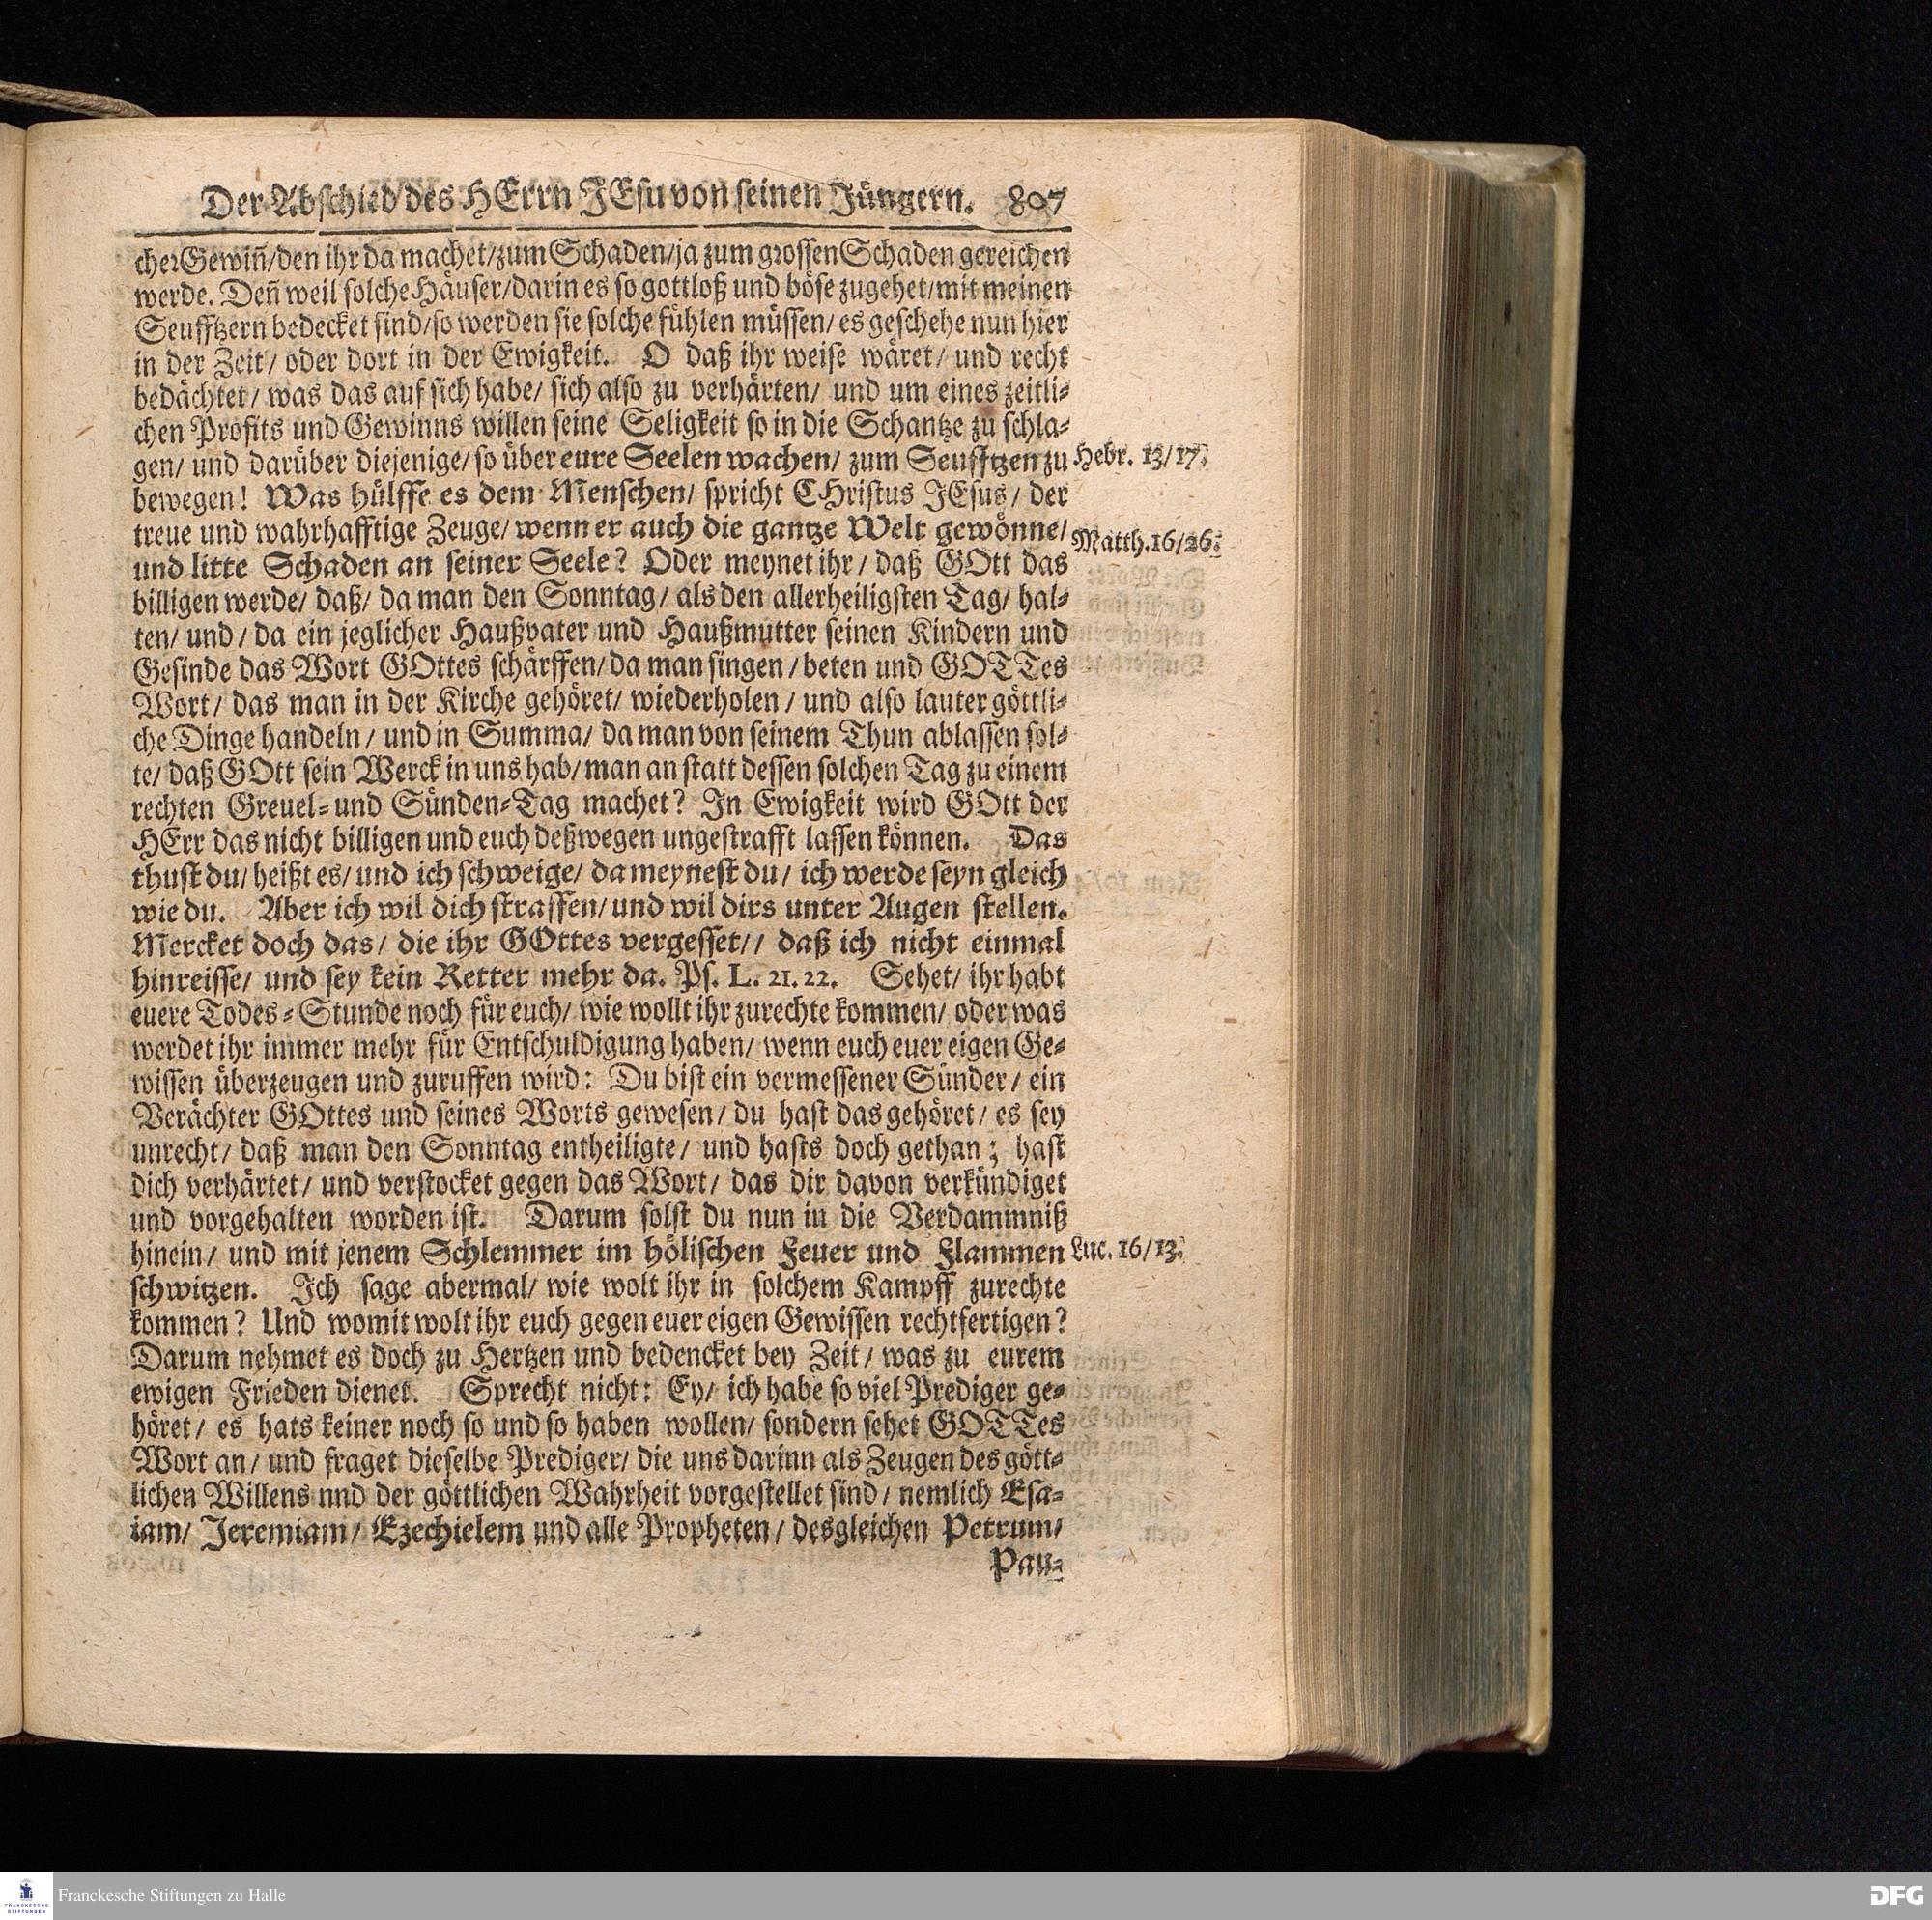 Der Abschied des HErrn JEsu von seinen Jüngern. 807
cher Gewiñ/den ihr da machet/zum Schaden/ja zum grossen Schaden gereichen
werde. Deñ weil solche Häuser/darin es so gottloß und böse zugehet/mit meinen
Seufftzern bedecket sind/so werden sie solche fühlen müssen/es geschehe nun hier
in der Zeit/ oder dort in der Ewigkeit. O daß ihr weise wäret/ und recht
bedächtet/ was das auf sich habe/ sich also zu verhärten/ und um eines zeitli-
chen Profits und Gewinns willen seine Seligkeit so in die Schantze zu schla-
gen/ und darüber diejenige/ so über eure Seelen wachen/ zum Seufftzen zu
Hebr. 13/17.
bewegen! Was hülffe es dem Menschen/ spricht CHristus JEsus/ der
treue und wahrhafftige Zeuge/ wenn er auch die gantze Welt gewönne/
Matth. 16/26.
und litte Schaden an seiner Seele? Oder meynet ihr/ daß GOtt das
billigen werde/ daß/ da man den Sonntag/ als den allerheiligsten Tag/ hal-
ten/ und/ da ein jeglicher Haußvater und Haußmutter seinen Kindern und
Gesinde das Wort GOttes schärffen/ da man singen/ beten und GOTTes
Wort/ das man in der Kirche gehöret/ wiederholen/ und also lauter göttli-
che Dinge handeln/ und in Summa/ da man von seinem Thun ablassen sol-
te/ daß GOtt sein Werck in uns hab/ man an statt dessen solchen Tag zu einem
rechten Greuel- und Sünden-Tag machet? In Ewigkeit wird GOtt der
HErr das nicht billigen und euch deßwegen ungestrafft lassen können. Das
thust du/ heißt es/ und ich schweige/ da meynest du/ ich werde seyn gleich
wie du. Aber ich wil dich straffen/ und wil dirs unter Augen stellen.
Mercket doch das/ die ihr GOttes vergesset// daß ich nicht einmal
hinreisse/ und sey kein Retter mehr da. Ps. L. 21. 22. Sehet/ ihr habt
euere Todes-Stunde noch für euch/ wie wollt ihr zurechte kommen/ oder was
werdet ihr immer mehr für Entschuldigung haben/ wenn euch euer eigen Ge-
wissen überzeugen und zuruffen wird: Du bist ein vermessener Sünder/ ein
Verächter GOttes und seines Worts gewesen/ du hast das gehöret/ es sey
unrecht/ daß man den Sonntag entheiligte/ und hasts doch gethan; hast
dich verhärtet/ und verstocket gegen das Wort/ das dir davon verkündiget
und vorgehalten worden ist. Darum solst du nun in die Verdammniß
hinein/ und mit jenem Schlemmer im hölischen Feuer und Flammen
Luc. 16/13.
schwitzen. Ich sage abermal/ wie wolt ihr in solchem Kampff zurechte
kommen? Und womit wolt ihr euch gegen euer eigen Gewissen rechtfertigen?
Darum nehmet es doch zu Hertzen und bedencket bey Zeit/ was zu eurem
ewigen Frieden dienet. Sprecht nicht: Ey/ ich habe so viel Prediger ge-
höret/ es hats keiner noch so und so haben wollen/ sondern sehet GOTTes
Wort an/ und fraget dieselbe Prediger/ die uns darinn als Zeugen des gött-
lichen Willens nnd der göttlichen Wahrheit vorgestellet sind/ nemlich Esa-
iam/ Jeremiam/ Ezechielem und alle Propheten/ desgleichen Petrum/
Pau-
FRANCKESCHE
STIFTUNGEN
Franckesche Stiftungen zu Halle
DFG